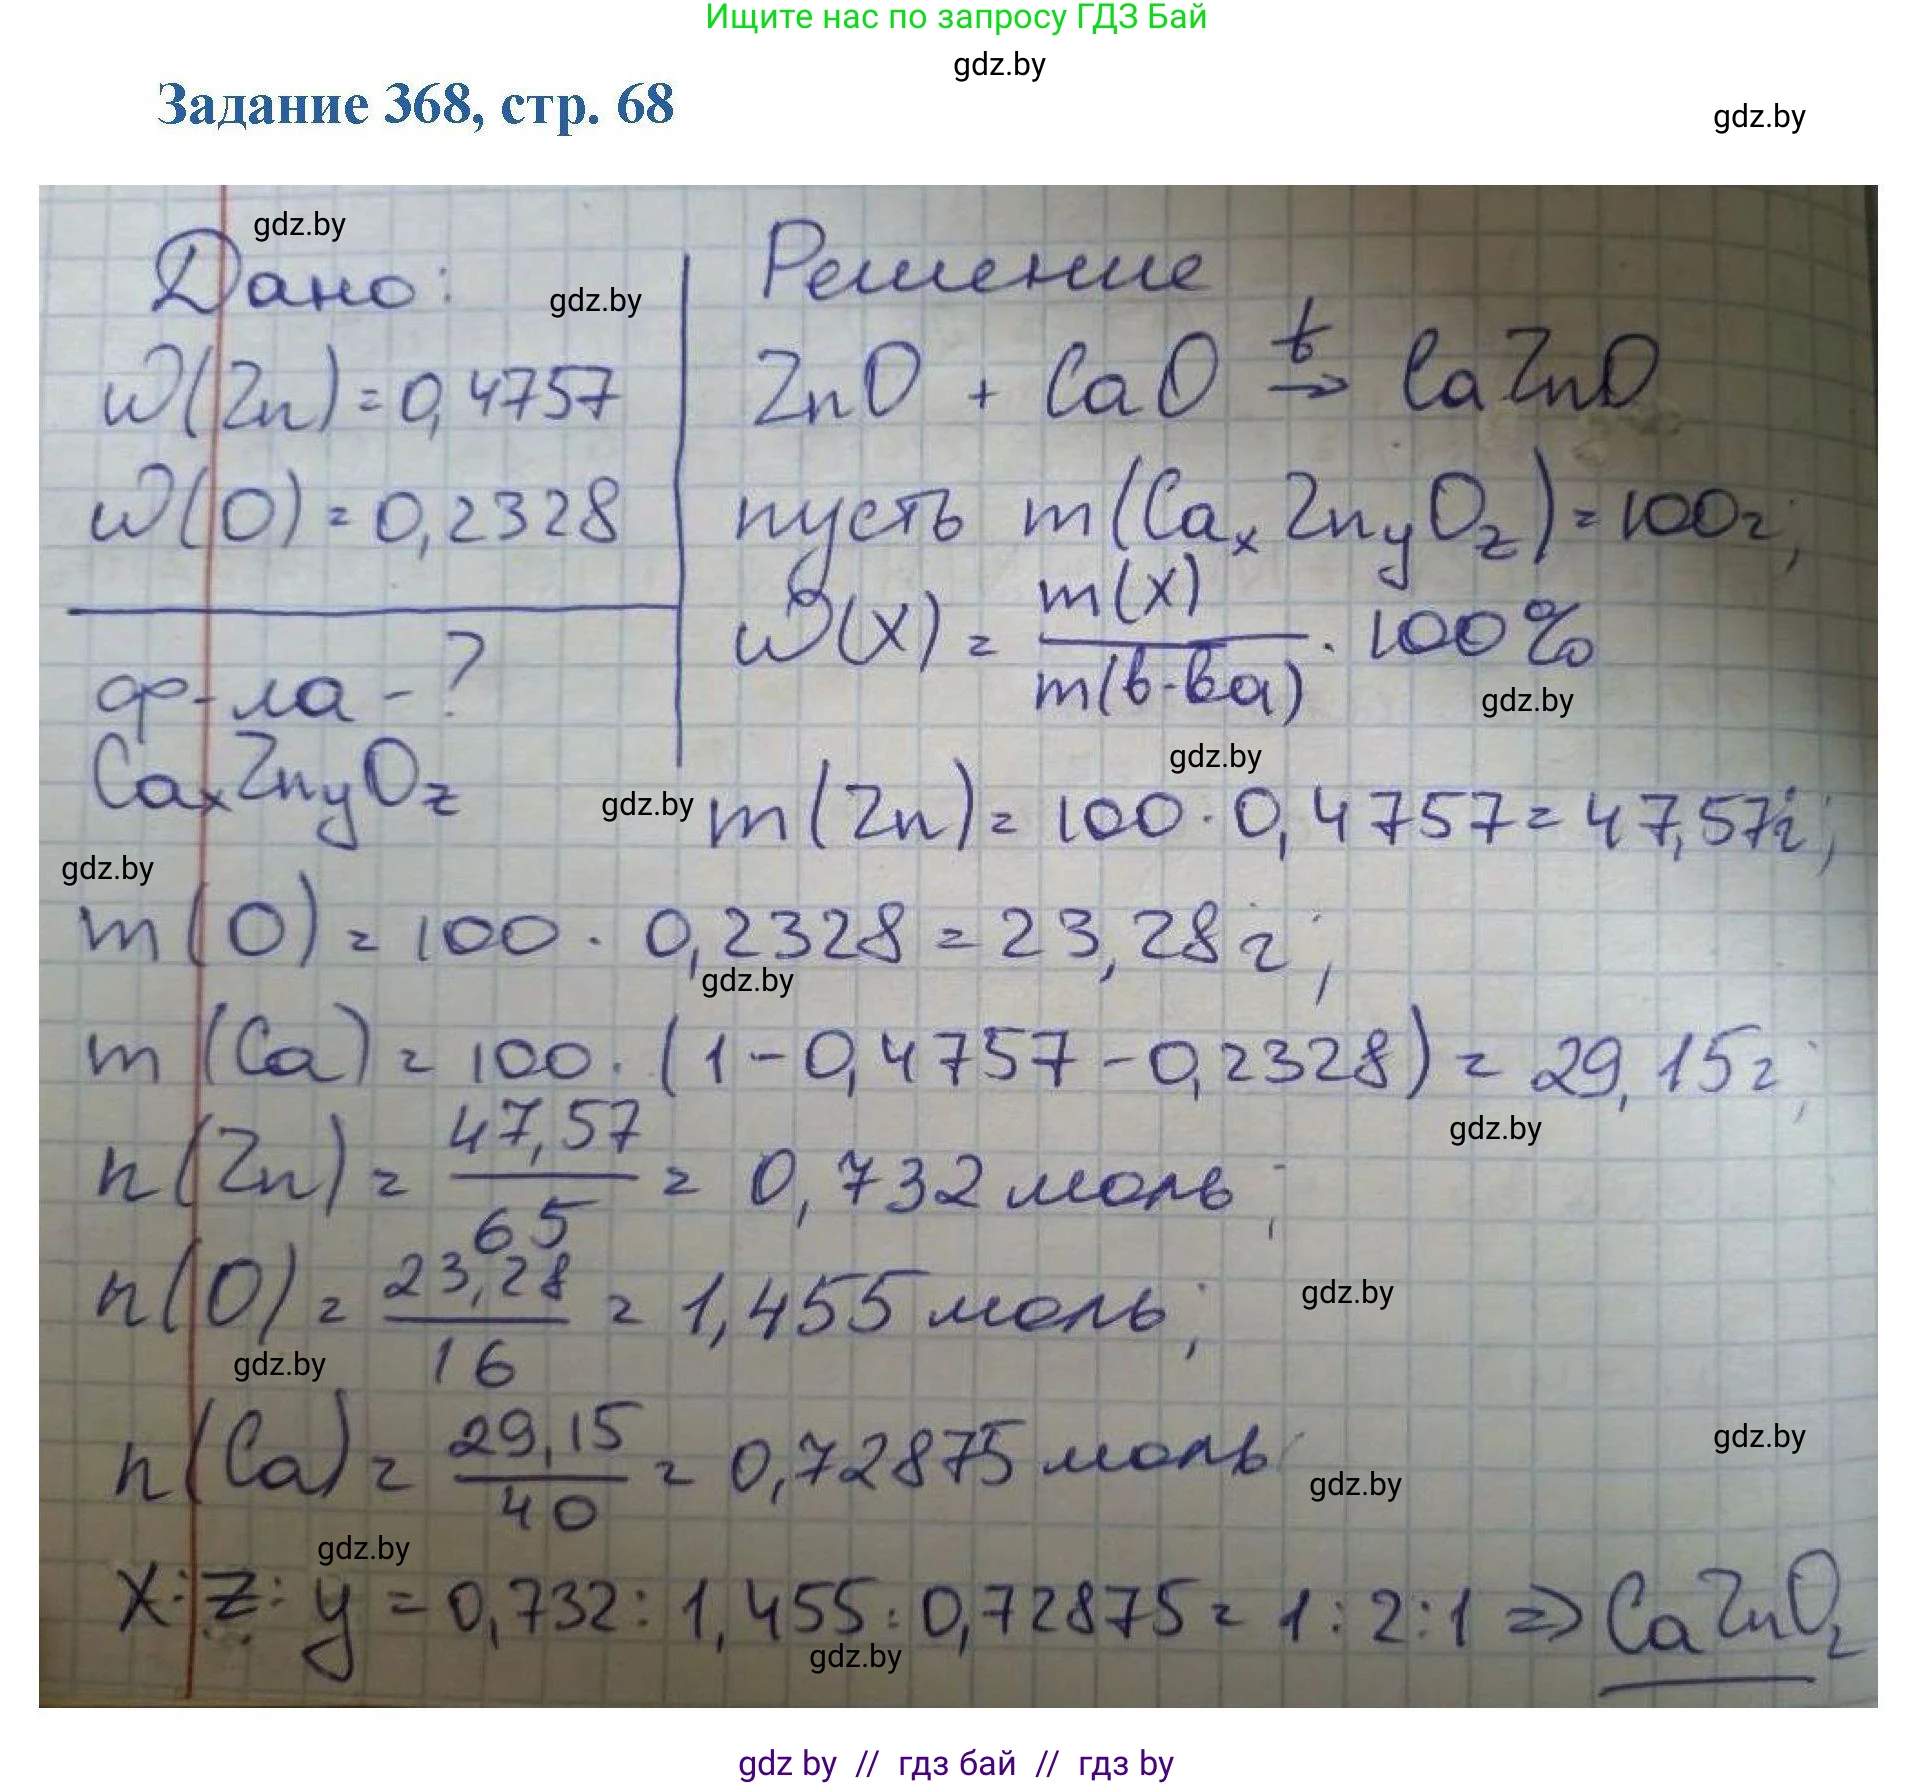 Ищите нас по запросу ГДЗ Бай
gdz.by
Задание 368, стр. 68
gdz.by
gdz.by
Дано:
gdz.by
w(Zn) = 0,4757
w(O) = 0,2328
ф-ла - ?
CaxZnyOz
Решение
ZnO + CaO t→ CaZnO
пусть m(CaxZnyOz) = 100г;
w(X) = m(X) / m(в-ва) · 100%
gdz.by
gdz.by
gdz.by
m(Zn) = 100 · 0,4757 = 47,57г;
gdz.by
m(O) = 100 · 0,2328 = 23,28г;
gdz.by
m(Ca) = 100 · (1 - 0,4757 - 0,2328) = 29,15г;
gdz.by
n(Zn) = 47,57 / 65 = 0,732 моль;
n(O) = 23,28 / 16 = 1,455 моль;
gdz.by
gdz.by
n(Ca) = 29,15 / 40 = 0,72875 моль
gdz.by
gdz.by
gdz.by
x : z : y = 0,732 : 1,455 : 0,72875 = 1 : 2 : 1 ⇒ CaZnO2
gdz.by
gdz by // гдз бай // гдз by